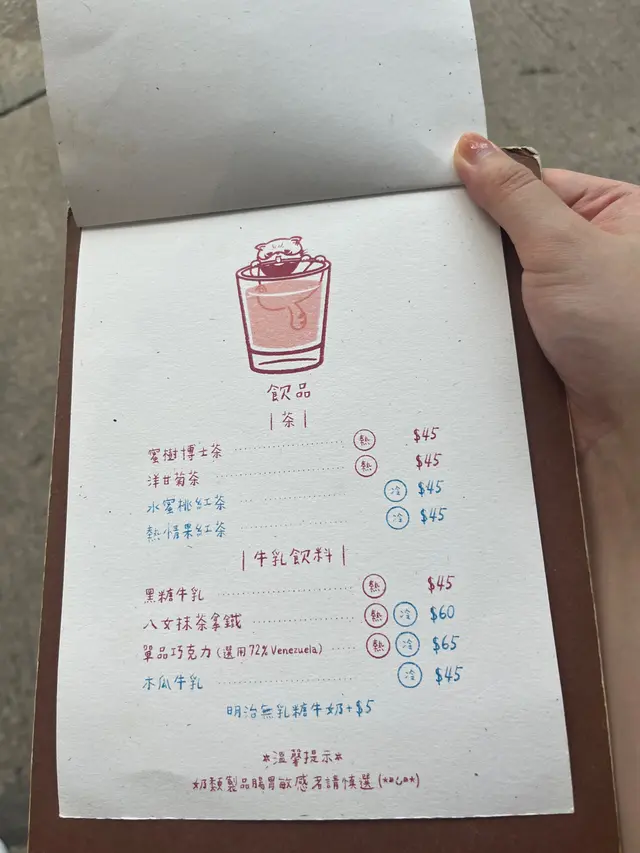 飲品
|茶|
蜜樹博士茶 熱 $45
洋甘菊茶 熱 $45
水蜜桃紅茶 冷 $45
熱情果紅茶 冷 $45
|牛乳飲料|
黑糖牛乳 熱 $45
八女抹茶拿鐵 熱 冷 $60
單品巧克力(選用72% Venezuela) 熱 冷 $65
木瓜牛乳 冷 $45
明治無乳糖牛奶+$5
*溫馨提示*
奶類製品腸胃敏感者請慎選(**)